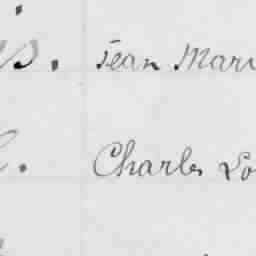 is. Jean Mari
Charles Lo